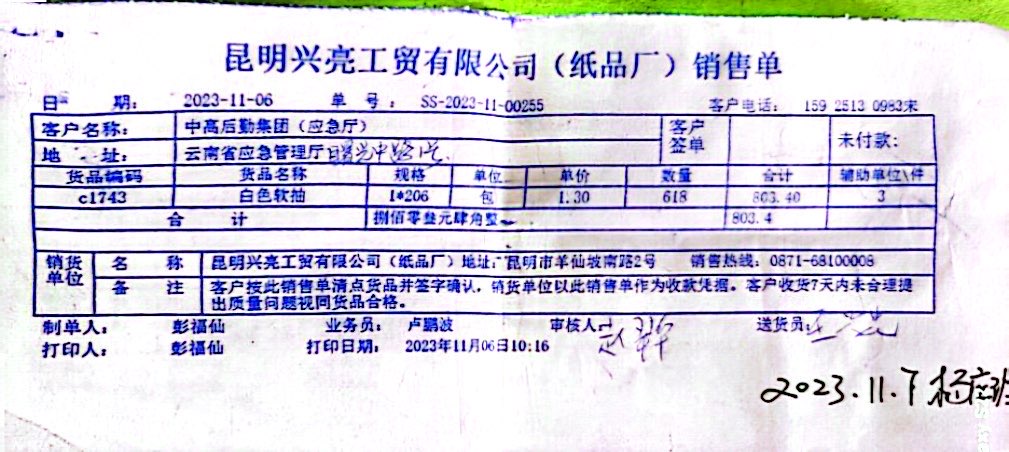 昆明兴亮工贸有限公司（纸品厂）销售单
日 期： 2023-11-06 单 号： SS-2023-11-00255 客户电话： 159 2513 0983宋
客户名称： 中高后勤集团（应急厅） 客户签单 未付款：
地 址： 云南省应急管理厅
货品编码 货品名称 规格 单位 单价 数量 合计 辅助单位\件
c1743 白色软抽 1*206 包 1.30 618 803.40 3
合 计 捌佰零叁元肆角整 803.4
销货单位 名 称 昆明兴亮工贸有限公司（纸品厂）地址：昆明市羊仙坡南路2号 销售热线：0871-68100008
备 注 客户按此销售单清点货品并签字确认，销货单位以此销售单作为收款凭据。客户收货7天内未合理提
出质量问题视同货品合格。
制单人： 彭福仙 业务员： 卢鹏波 审核人： 送货员：
打印人： 彭福仙 打印日期： 2023年11月06日10:16
2023.11.7